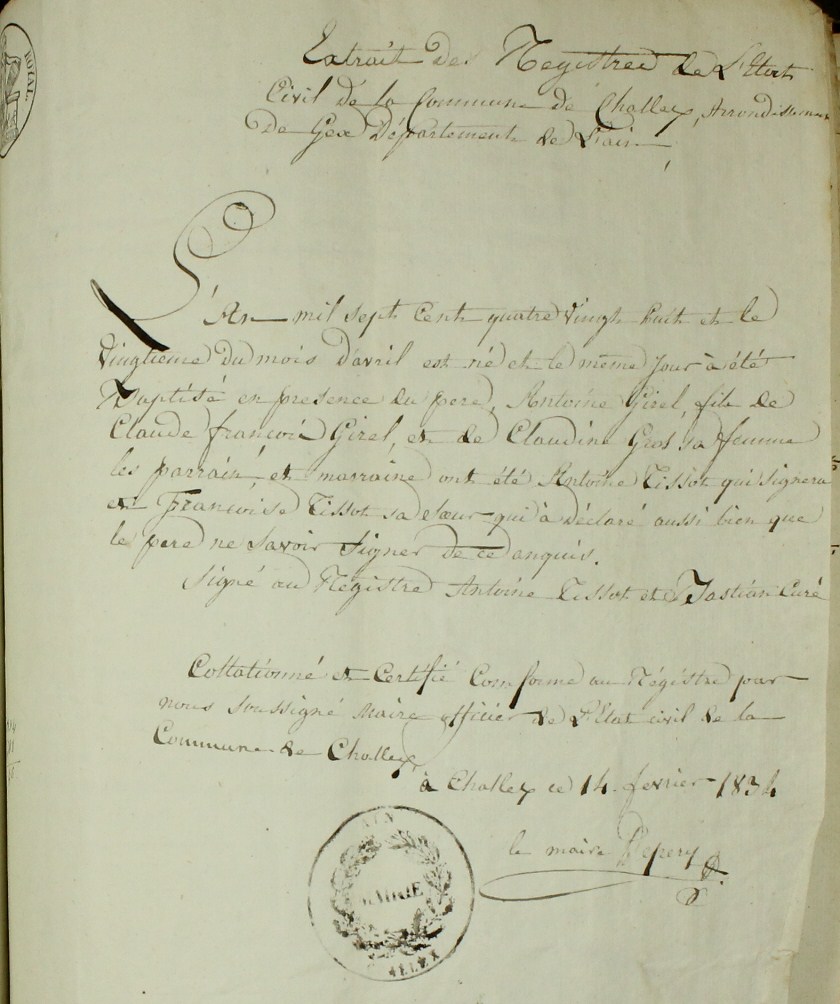 ROYAL.
Extrait Des Régistres de L'Etat
Civil de la Commune de Challex, Arrondissement
De Gex Département de L'ain
L'An mil sept Cent quatre Vingt huit et le
Vingtieme Du mois D'avril est né et le même jour à été
Baptisé en presence du pere, Antoine Girel, fils de
Claude francois Girel, et de Claudine Gros sa femme
les parrain, et marraine ont été Antoine Tissot qui signera
et Francoise Tissot sa soeur qui à déclaré aussi bien que
le pere ne Savoir Signer de ce enquis.
Signé au Régistre Antoine Tissot et Bastian Curé
Collationné et Certifié Conforme au Régistre par
nous Soussigné Maire officier de L'Etat civil de la
Commune de Challex
à Challex ce 14 fevrier 1834
le maire Depery
AIN
MAIRIE
CHALLEX